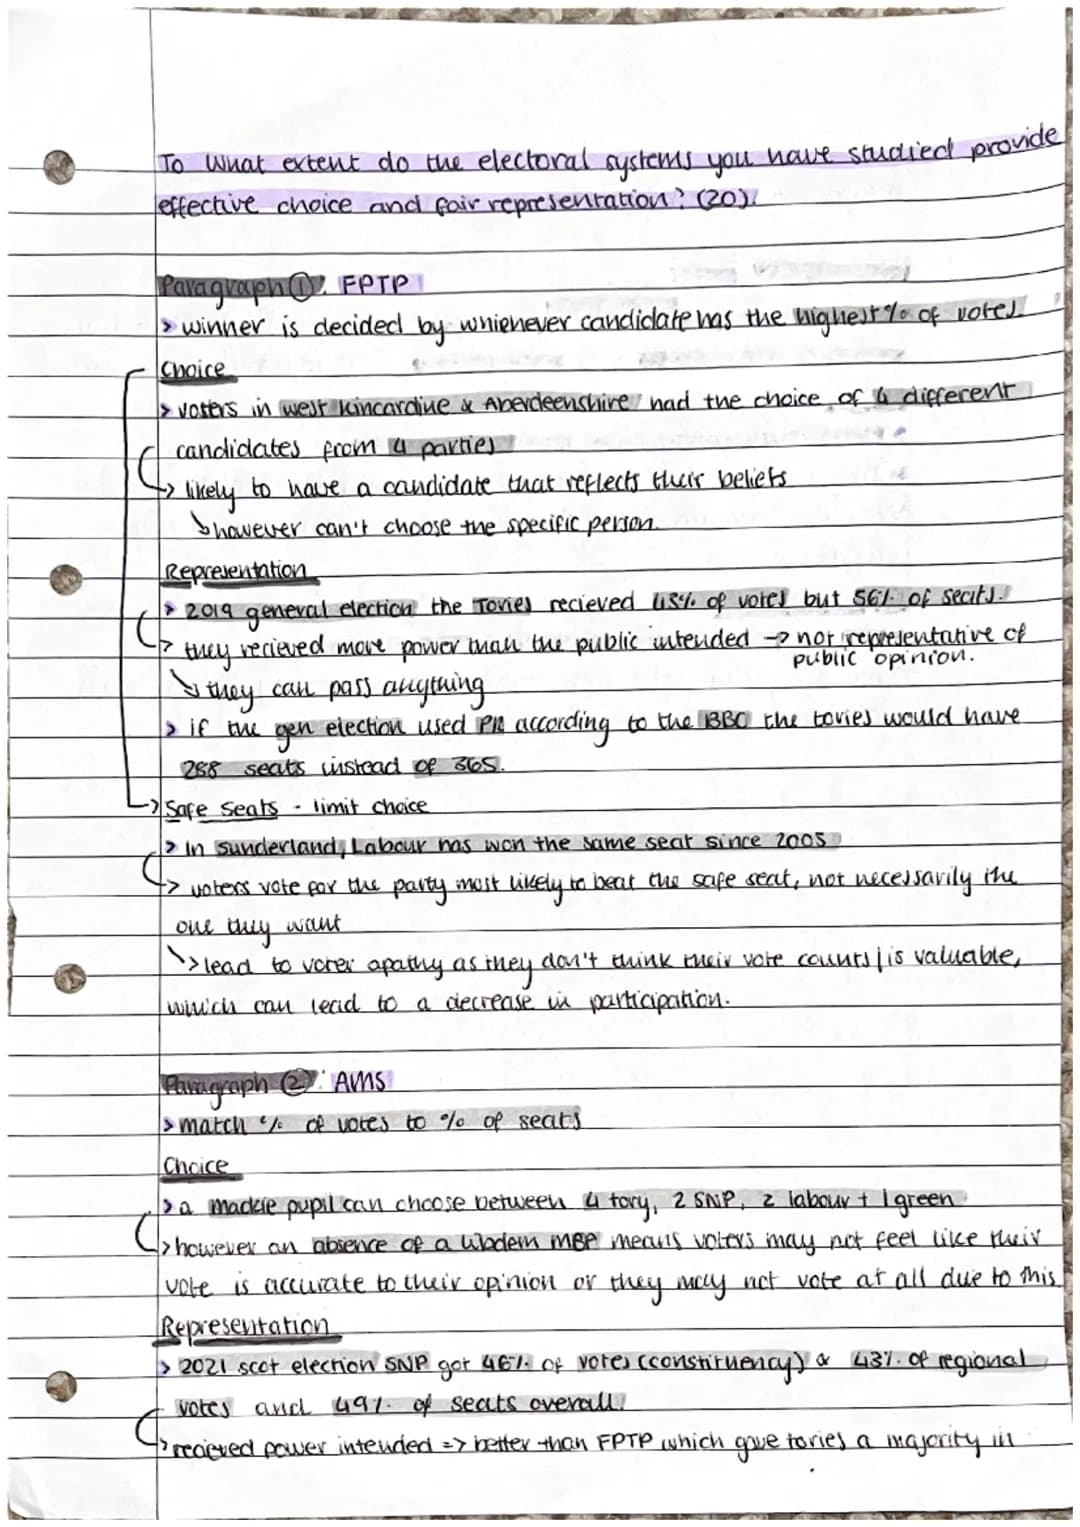 To What extent do the electoral systems you have studied provide
effective choice and fair representation? (20).
Paragraph ①: FPTP
> winner is decided by whichever candidate has the highest % of votes.
Choice
> voters in west kincardine & Aberdeenshire had the choice of 4 different
candidates from 4 parties
↳ likely to have a candidate that reflects their beliefs
↳ however can't choose the specific person.
Representation
> 2019 general election the Tories recieved 43% of votes but 56% of seats.
↳ they recieved more power than the public intended → not representative of
public opinion.
↘ they can pass anything
> if the gen election used PR according to the BBC the tories would have
288 seats instead of 365.
→ Safe Seats - limit choice
> In Sunderland, Labour has won the same seat since 2005
↳ voters vote for the party most likely to beat the safe seat, not necessarily the
one they want
↘ lead to voter apathy as they don't think their vote counts / is valuable,
which can lead to a decrease in participation.
Paragraph ②: AMS
> match % of votes to % of seats
Choice
> a mackie pupil can choose between 4 tory, 2 SNP, 2 labour + 1 green
↳ however an absence of a libdem MSP means voters may not feel like their
vote is accurate to their opinion or they may not vote at all due to this.
Representation
> 2021 scot election SNP got 46% of votes (constituency) & 43% of regional
votes and 49% of seats overall.
↳ recieved power intended => better than FPTP which gave tories a majority in